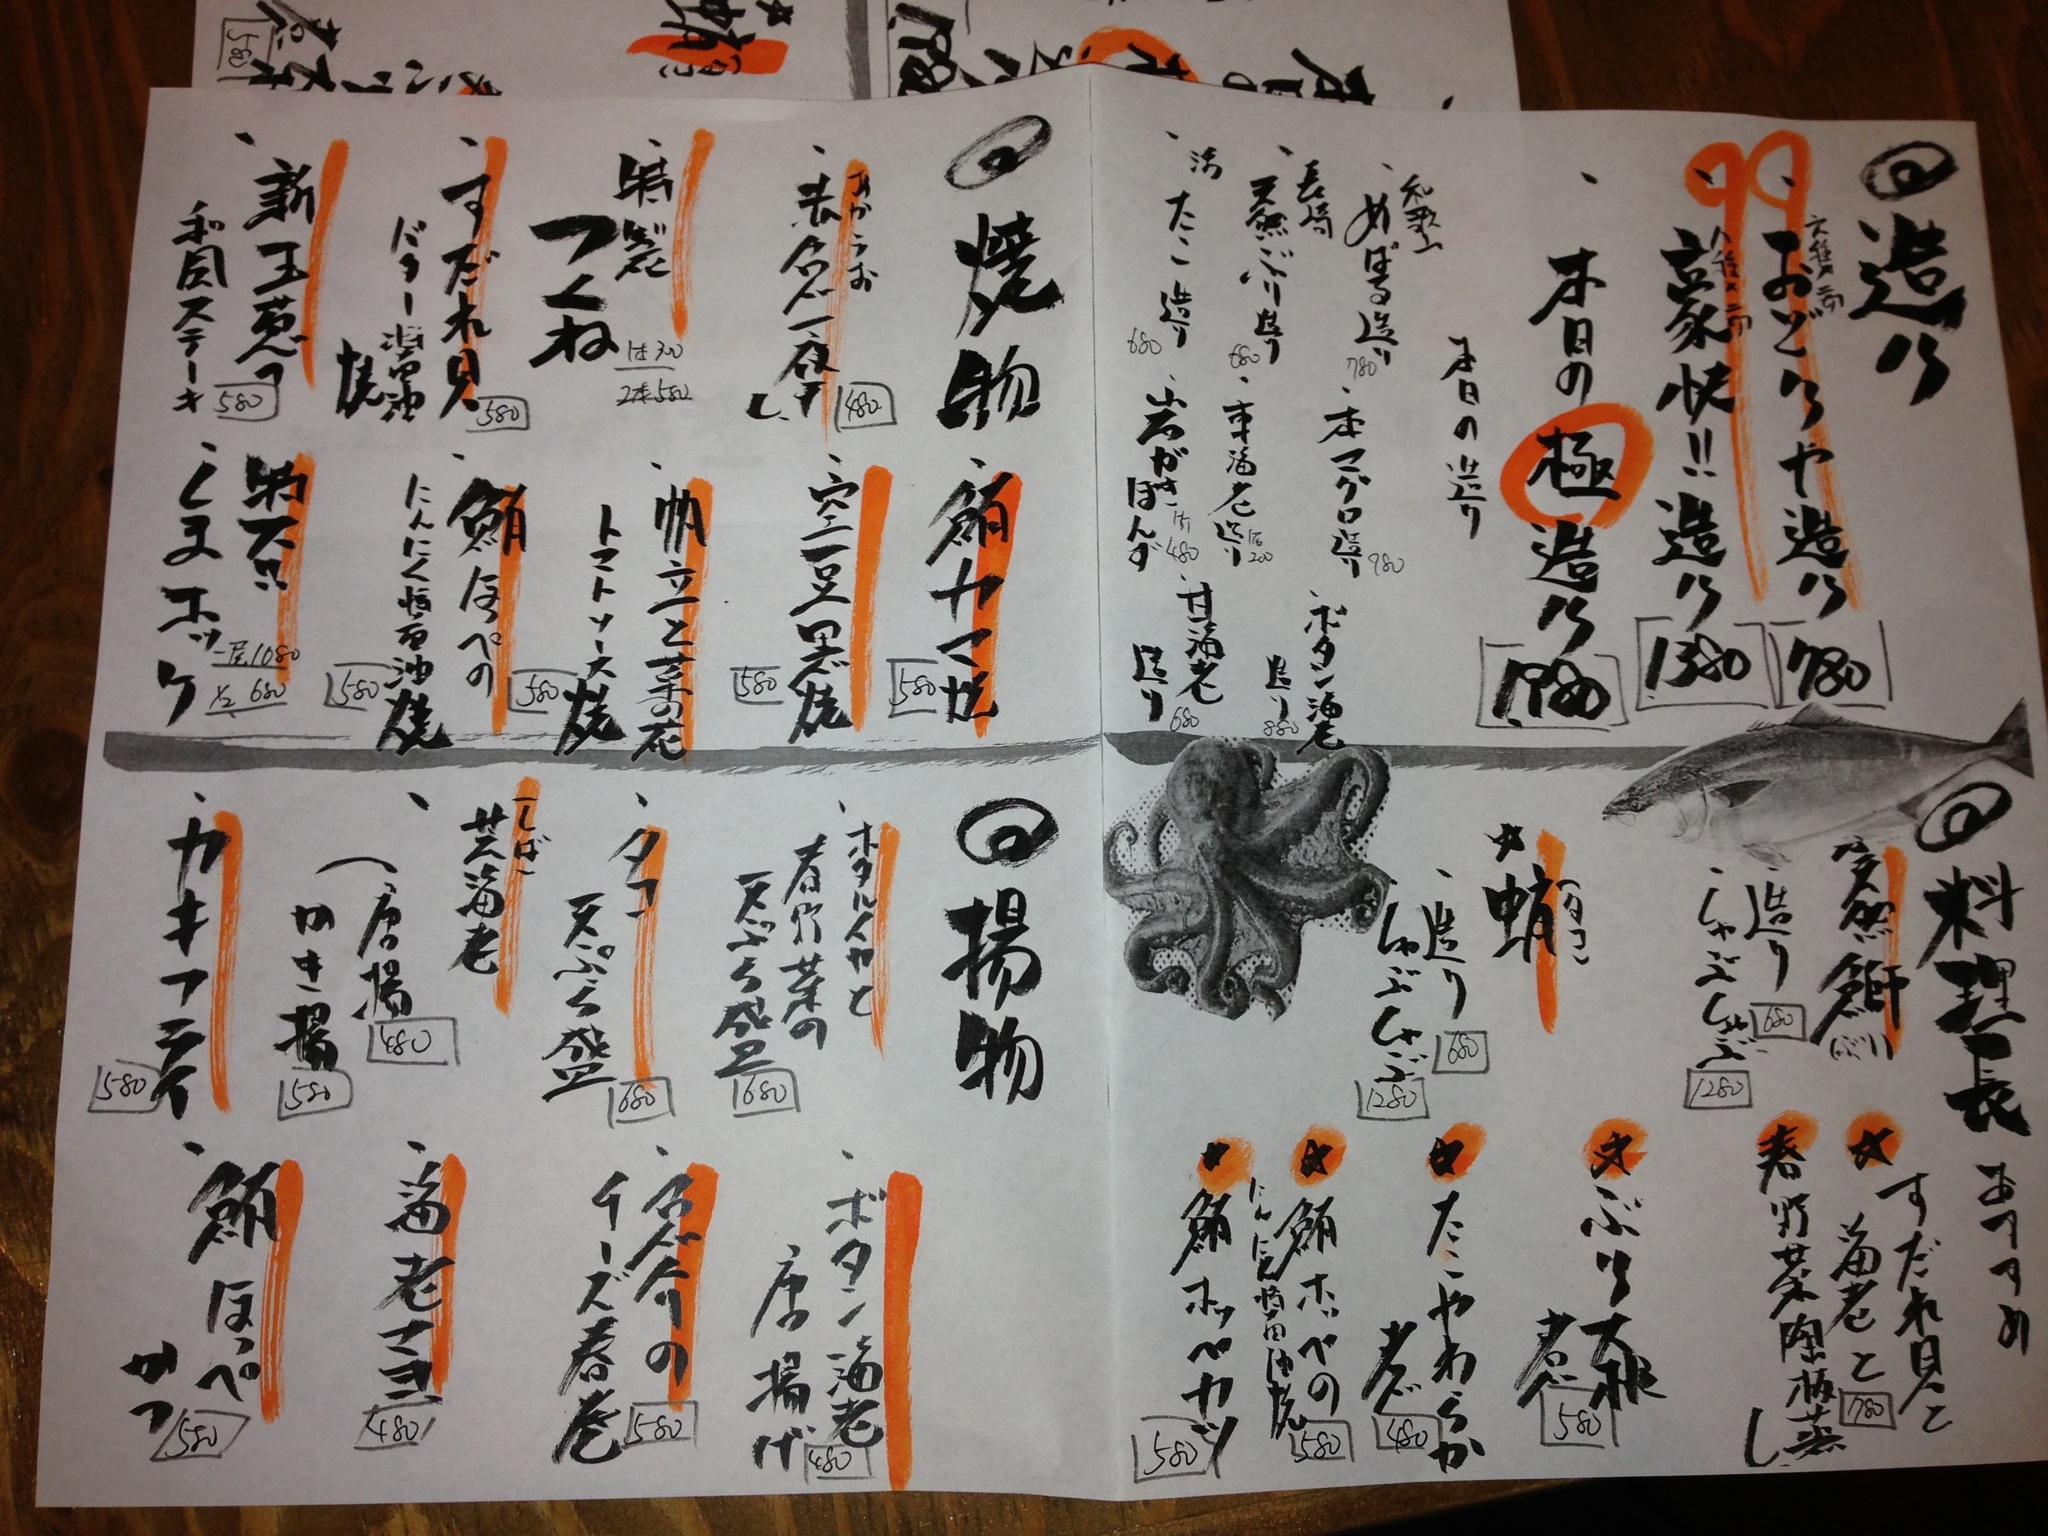 造り
六種二前
おどりや造り
780
八種二前
豪快!!造り
1380
本日の極造り
本日の造り
和歌山
めばる造り
780
本マグロ造り
980
ボタン海老
造り
880
長崎
天然ぶり造り
680
車海老造り
200
甘海老
造り
680
活
たこ造り
680
岩がき
ぽんず
480
料理長おすすめ
天然鰤
(ぶり)
造り
680
しゃぶしゃぶ
1280
蛸
(たこ)
造り
680
しゃぶしゃぶ
1280
すだれ貝と
海老と
春野菜陶板蒸し
780
ぶり大根
580
たこやわらか煮
480
鮪ホッペの
にんにく醤油焼
580
鮪ホッペカツ
580
焼物
あかうお
赤魚一夜干し
480
特製
つくね
1本300
2本580
すだれ貝
バター醤油焼
580
新玉葱の
和風ステーキ
580
鮪カマ焼
580
空豆黒焼
580
帆立と菜の花
トマトソース焼
580
鮪ほっぺの
にんにく醤油焼
580
特大!!
しまホッケ
一尾1080
1/2 680
揚物
ホタルイカと
春野菜の
天ぷら盛
680
タコ
天ぷら盛
680
しば
芝海老
唐揚
480
かき揚
580
カキフライ
580
ボタン海老
唐揚げ
480
チーズ春巻
580
海老マヨ
480
鮪ほっぺ
かつ
580